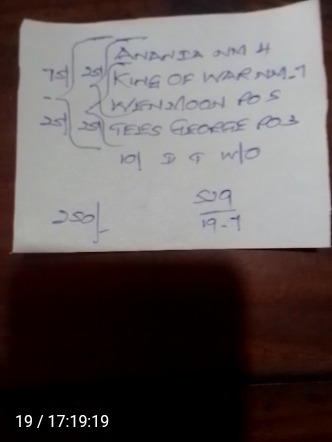 75/ 25/ ANANIA NM 4
KING OF WAR NM-7
WENMOON PO 5
25/ 25/ TEES GEORGE PO 3
10/ D T W/O
250/-
529
19-7
19 / 17:19:19